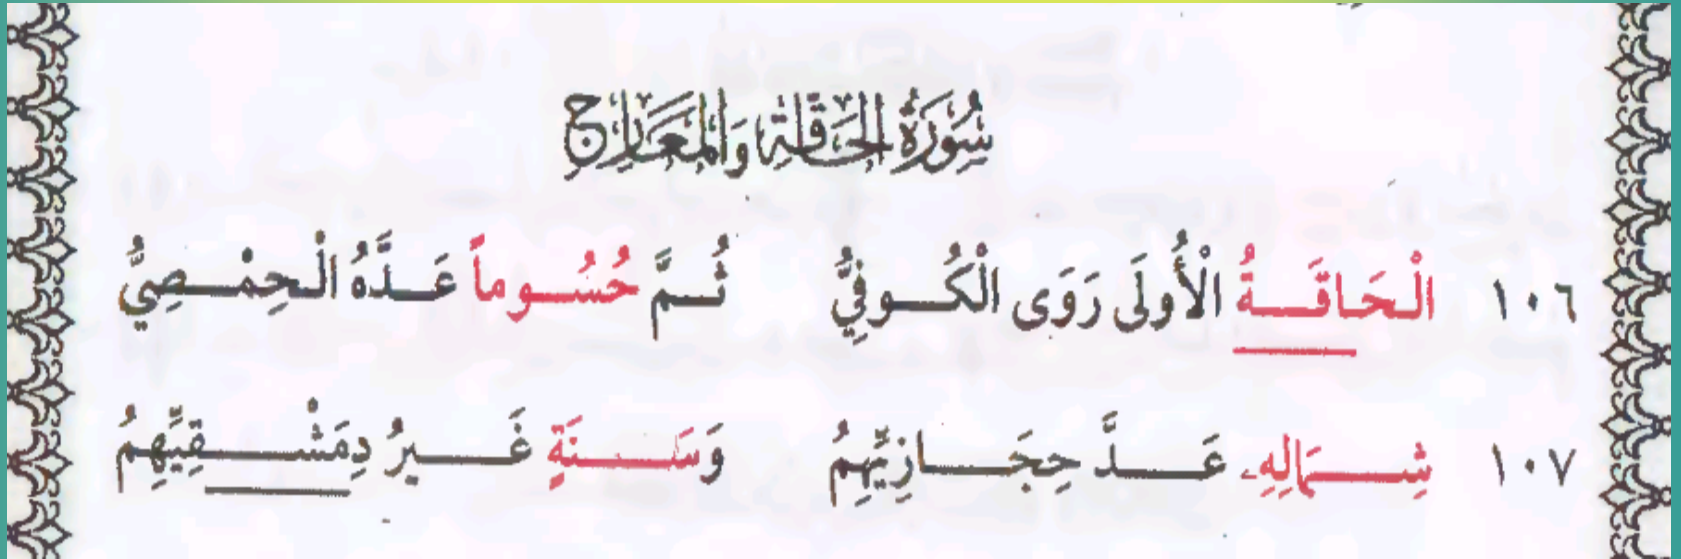 سُورَةُ الْحَاقَّةِ وَالْمَعَارِجِ
١٠٦ الْحَاقَةُ الْأُولَى رَوَى الْكُوفِيُّ ثُمَّ حُسُوماً عَدَّهُ الْحِمْصِيُّ
١٠٧ شِمَالِهِ عَدَّ حِجَازِيِّهِمُ وَسَنَةٍ غَيرُ دِمَشْقِيِّهِمُ